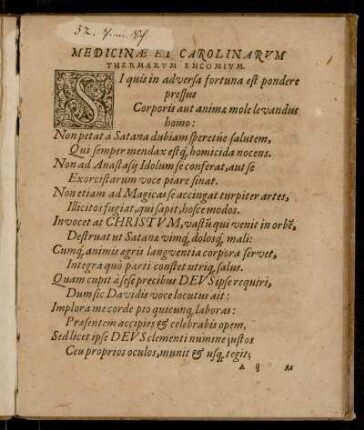 MEDICINÆ ET CAROLINARVM
THERMARVM ENCOMIVM.
SI quis in adversa fortuna est pondere
pressus
Corporis aut animæ mole levandus
homo:
Non petat à Satana dubiam speretúe salutem,
Qui semper mendax estq; homicida nocens.
Non ad Anastasij Idolum se conferat, aut se
Exorcistarum voce piare sinat.
Non etiam ad Magicas se accingat turpiter artes,
Illicitos fugiat, qui sapit, hosce modos.
Invocet at CHRISTVM, vastũ qui venit in orbẽ,
Destruat ut Satanæ vimq; dolosq; mali:
Cumq; animis ægris langventia corpora servet,
Integra quò parti constet utriq; salus.
Quam cupit à sese precibus DEVS ipse requiri,
Dum sic Davidis voce locutus ait:
Implora me corde pio quicunq; laboras:
Præsentem accipies & celebrabis opem,
Sed licet ipse DEVS clementi numine justos
Ceu proprios oculos, munit & usq; tegit;
A ij